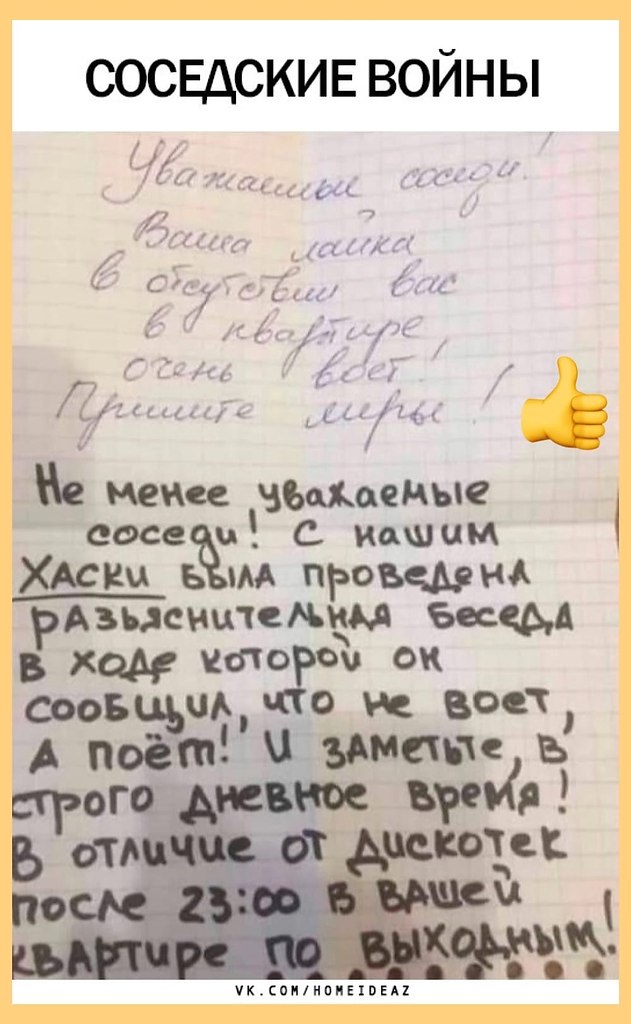 СОСЕДСКИЕ ВОЙНЫ
Уважаемые соседи!
Ваша лайка
в отсутствии вас
в квартире,
очень воет!
Примите меры!
Не менее уважаемые
соседи! С нашим
ХАСКИ была проведена
разьяснительная беседа
в ходе которой он
сообщил, что не воет,
а поёт! И заметьте, в
строго дневное время!
В отличие от дискотек
после 23:00 в вашей
квартире по выходным!
VK.COM/HOMEIDEAZ